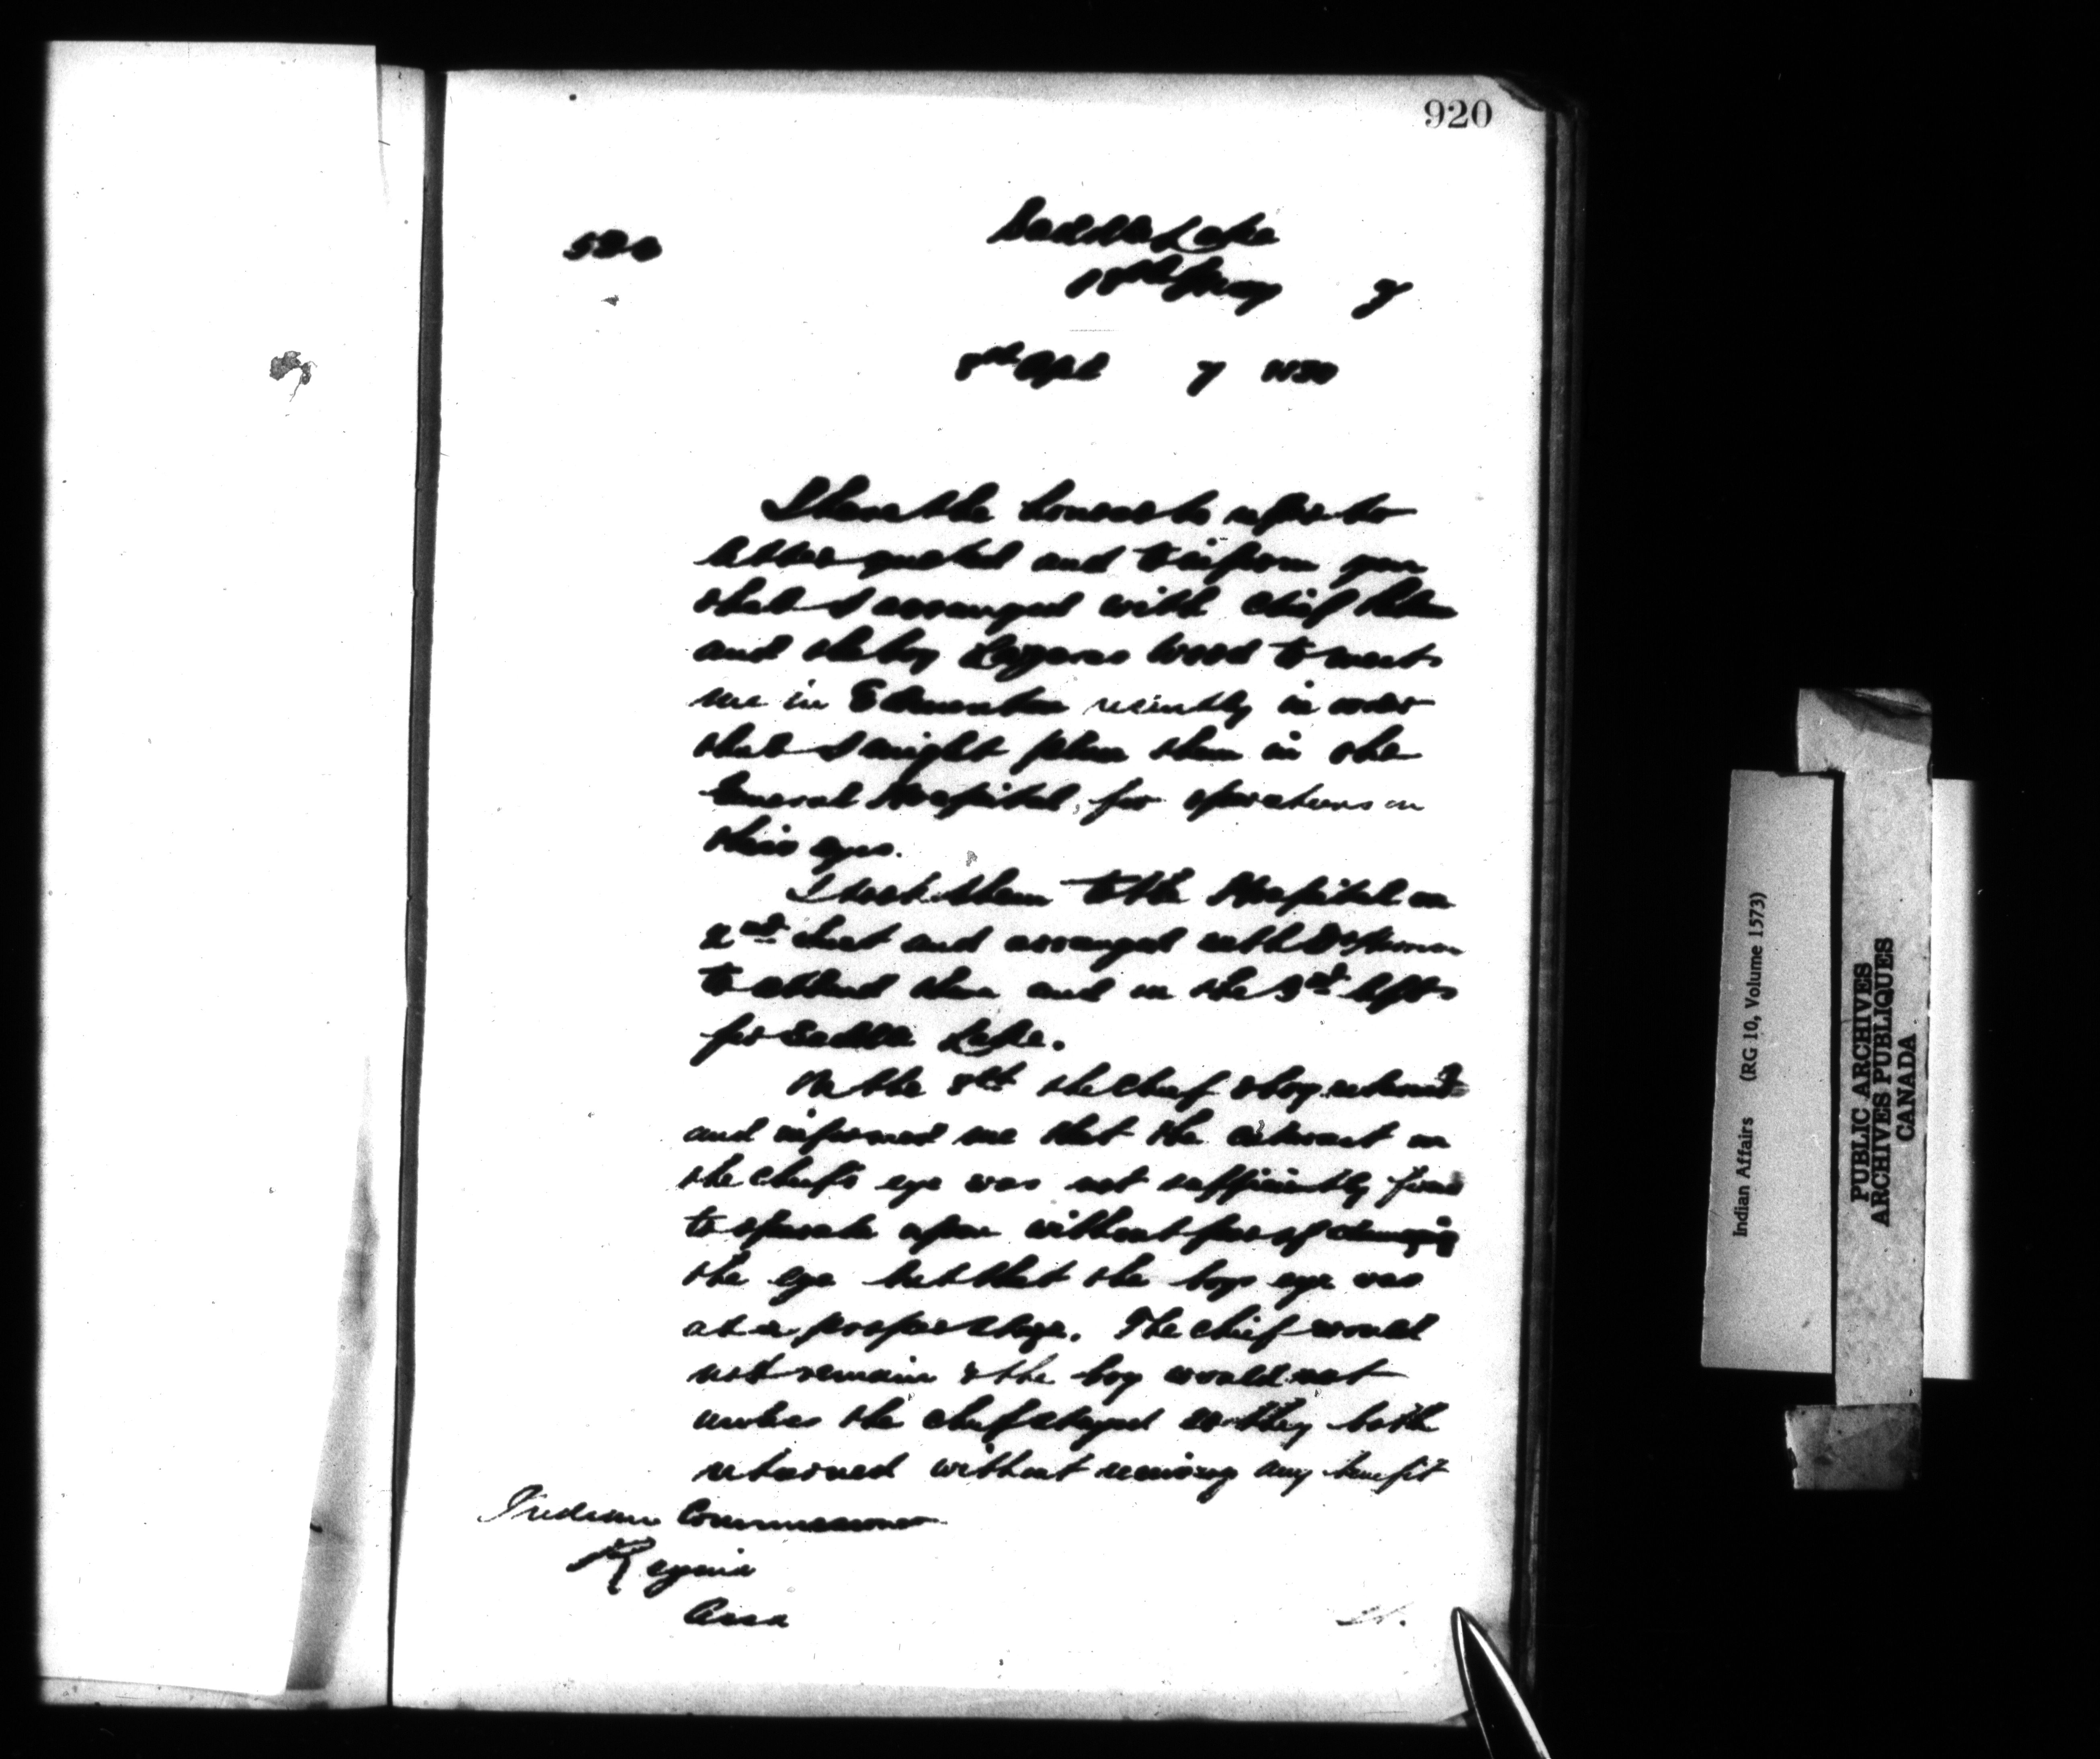 920
Saddle Lake
18th May 7
8th Apl 7
I have the honour to refer to
letter quoted and to inform you
that I arranged with Chief
and the boy Wood to meet
me in Edmonton recently in order
that I might place them in the
General Hospital, for operations on
their eyes.
I took them to the Hospital on
2nd inst and arranged with Dr
to attend them and on the 3rd left
for Saddle Lake.
On the 8th the Chief & boy returned
and informed me that the cataract on
the Chief's eye was not sufficiently
to operate upon without fear of damaging
the eye but that the boys eye was
at a proper stage. The Chief would
not remain & the boy would not
unless the Chief stayed so they both
returned without receiving any benefit
Indian Commissioner
Regina
Assa
Indian Affairs (RG 10, Volume 1573)
PUBLIC ARCHIVES
ARCHIVES PUBLIQUES
CANADA